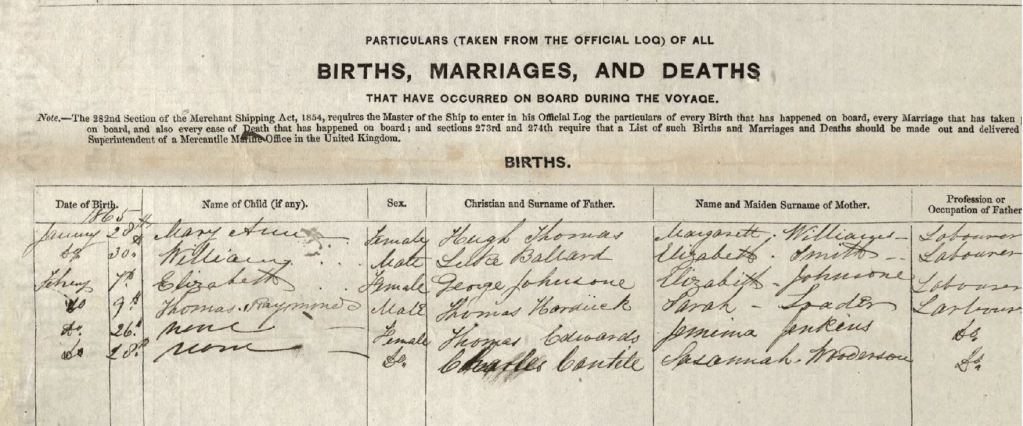 PARTICULARS (TAKEN FROM THE OFFICIAL LOG) OF ALL
BIRTHS, MARRIAGES, AND DEATHS
THAT HAVE OCCURRED ON BOARD DURING THE VOYAGE.
Note.—The 282nd Section of the Merchant Shipping Act, 1854, requires the Master of the Ship to enter in his Official Log the particulars of every Birth that has happened on board, every Marriage that has taken
on board, and also every case of Death that has happened on board; and sections 273rd and 274th require that a List of such Births and Marriages and Deaths should be made out and delivered
Superintendent of a Mercantile Marine Office in the United Kingdom.
BIRTHS.
Date of Birth. Name of Child (if any). Sex. Christian and Surname of Father. Name and Maiden Surname of Mother. Profession or Occupation of Father
1865
January 28th Mary Ann Female Hugh Thomas Margarett Williams Labourer
Do 30. William Male Luke Ballard Elizabeth Smith Labourer
7th Elizabeth Female George Johnsone Elizabeth Johnsone Labourer
Do 9th Thomas Raymond Male Thomas Sarah
Do. 26th none Female Thomas Edwards Jemima Jenkins Do.
Do 28th none Do. Charles Susannah Wooderson Do.